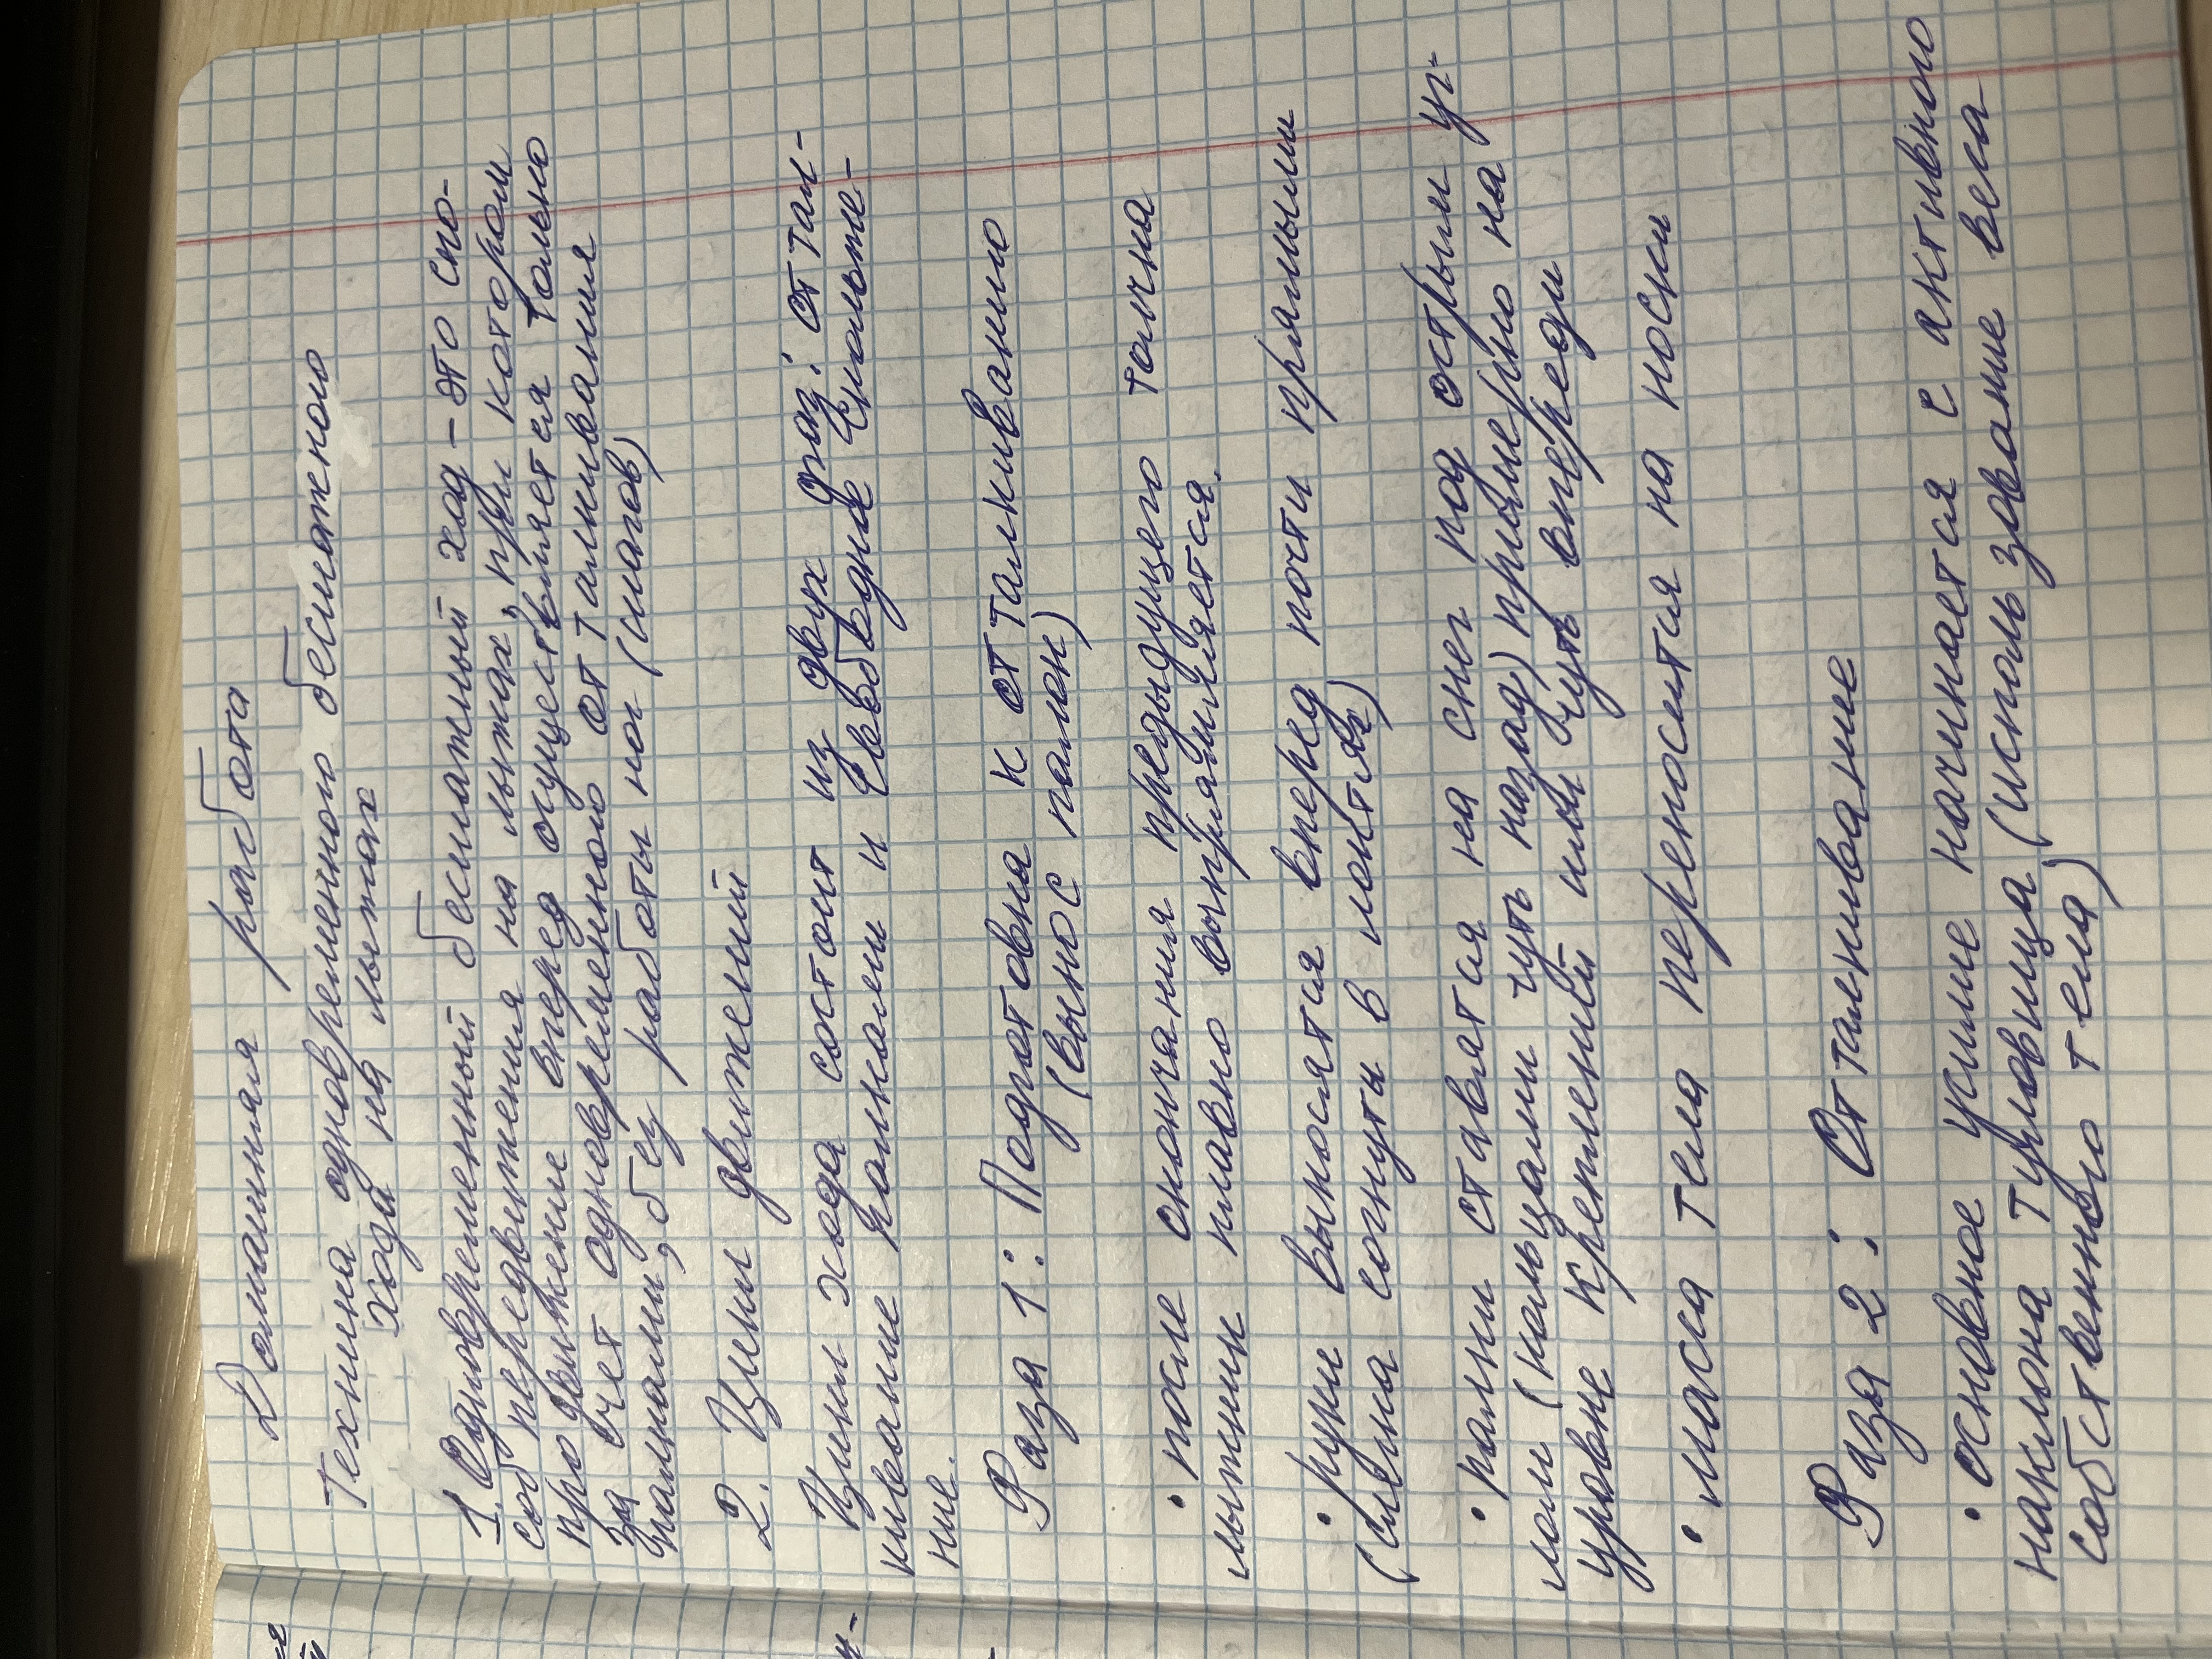 Домашняя работа
Техника одновременного бесшажного
хода на лыжах
1. Одновременный бесшажный ход – это спо-
соб передвижения на лыжах, при котором
продвижение вперед осуществляется только
за счет одновременного отталкивания
палками, без работы ног (шагов)
2. Цикл движений
Цикл хода состоит из двух фаз: оттал-
кивание палками и свободное скольже-
ние.
Фаза 1: Подготовка к отталкиванию
(вынос палок)
• после окончания предыдущего толчка
лыжник плавно выпрямляется.
• руки выносятся вперед почти прямыми
(слегка согнуты в локтях)
• палки ставятся на снег под острым уг-
лом (кольцами чуть назад) примерно на
уровне креплений или чуть впереди
• масса тела переносится на носки
Фаза 2: Отталкивание
• основное усилие начинается с активного
наклона туловища (использование веса
собственного тела)